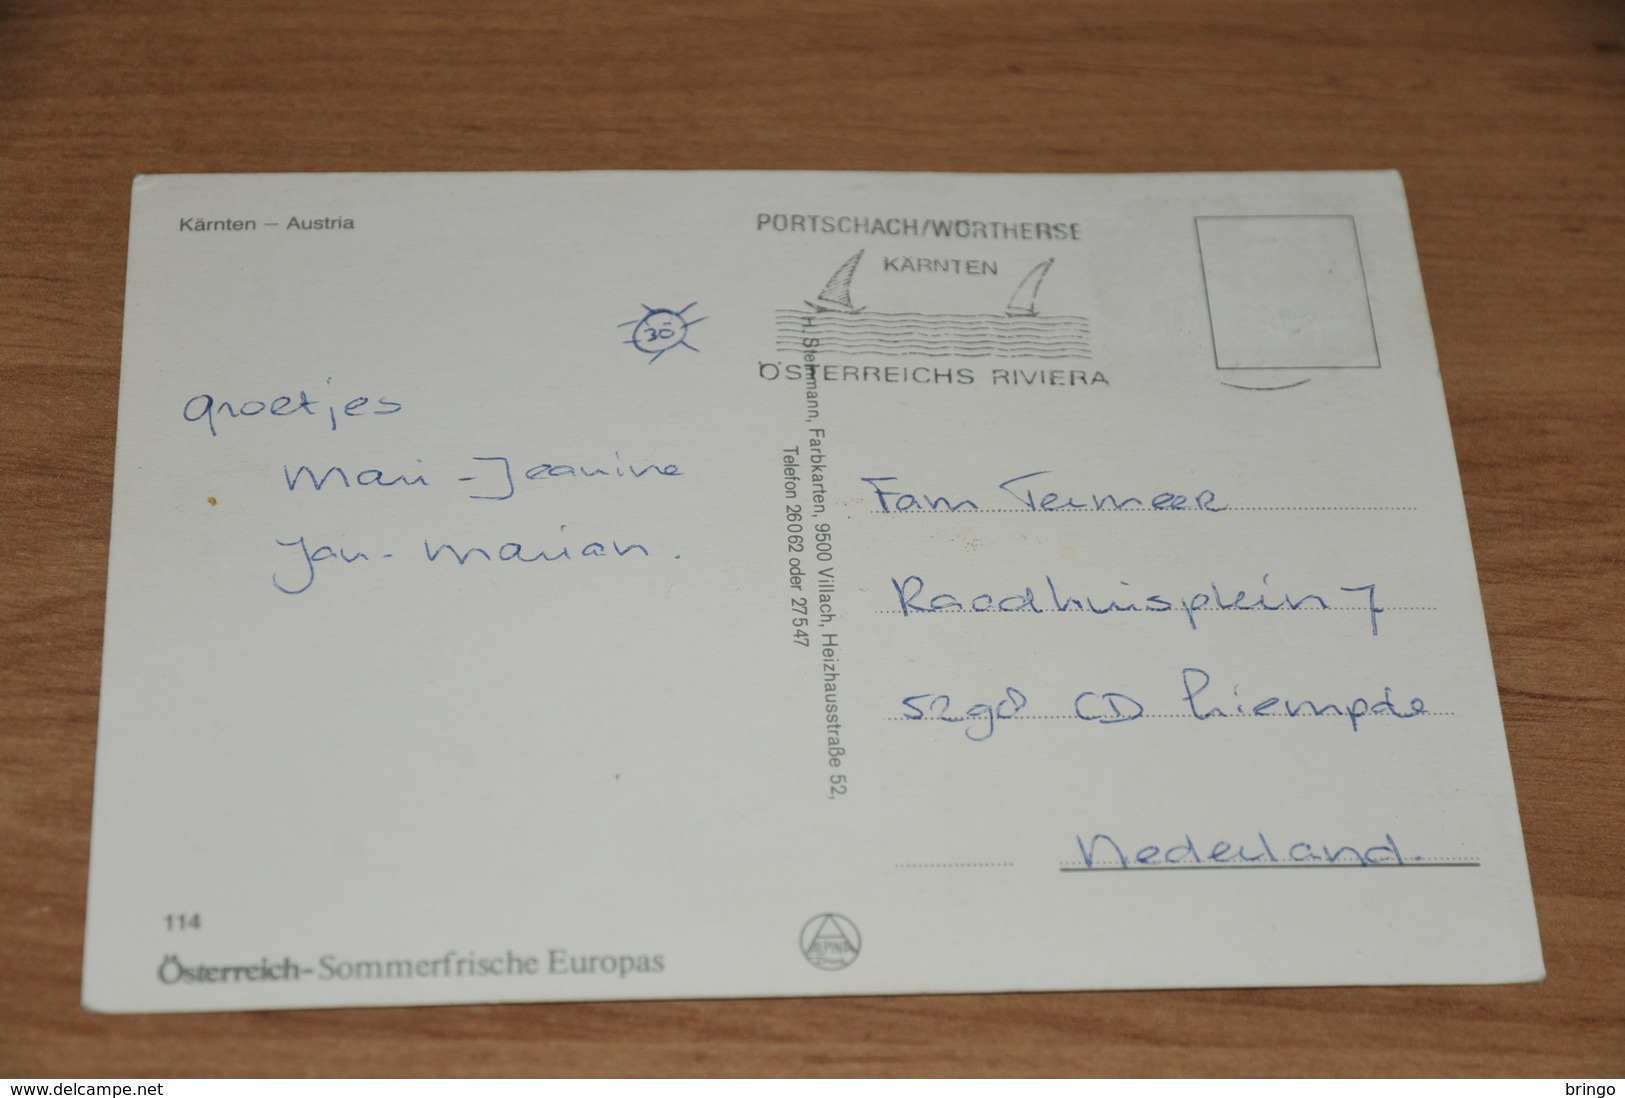 Kärnten – Austria
30°
groetjes
Mari - Jeanine
Jan - Marian.
114
Österreich-Sommerfrische Europas
PÖRTSCHACH/WÖRTHERSE
KÄRNTEN
ÖSTERREICHS RIVIERA
H. Steinmann, Farbkarten, 9500 Villach, Heizhausstraße 52,
Telefon 26062 oder 27547
ALPINA
Fam Termeer
Raadhuisplein 7
5298 CD Liempde
Nederland.
www.delcampe.net
bringo